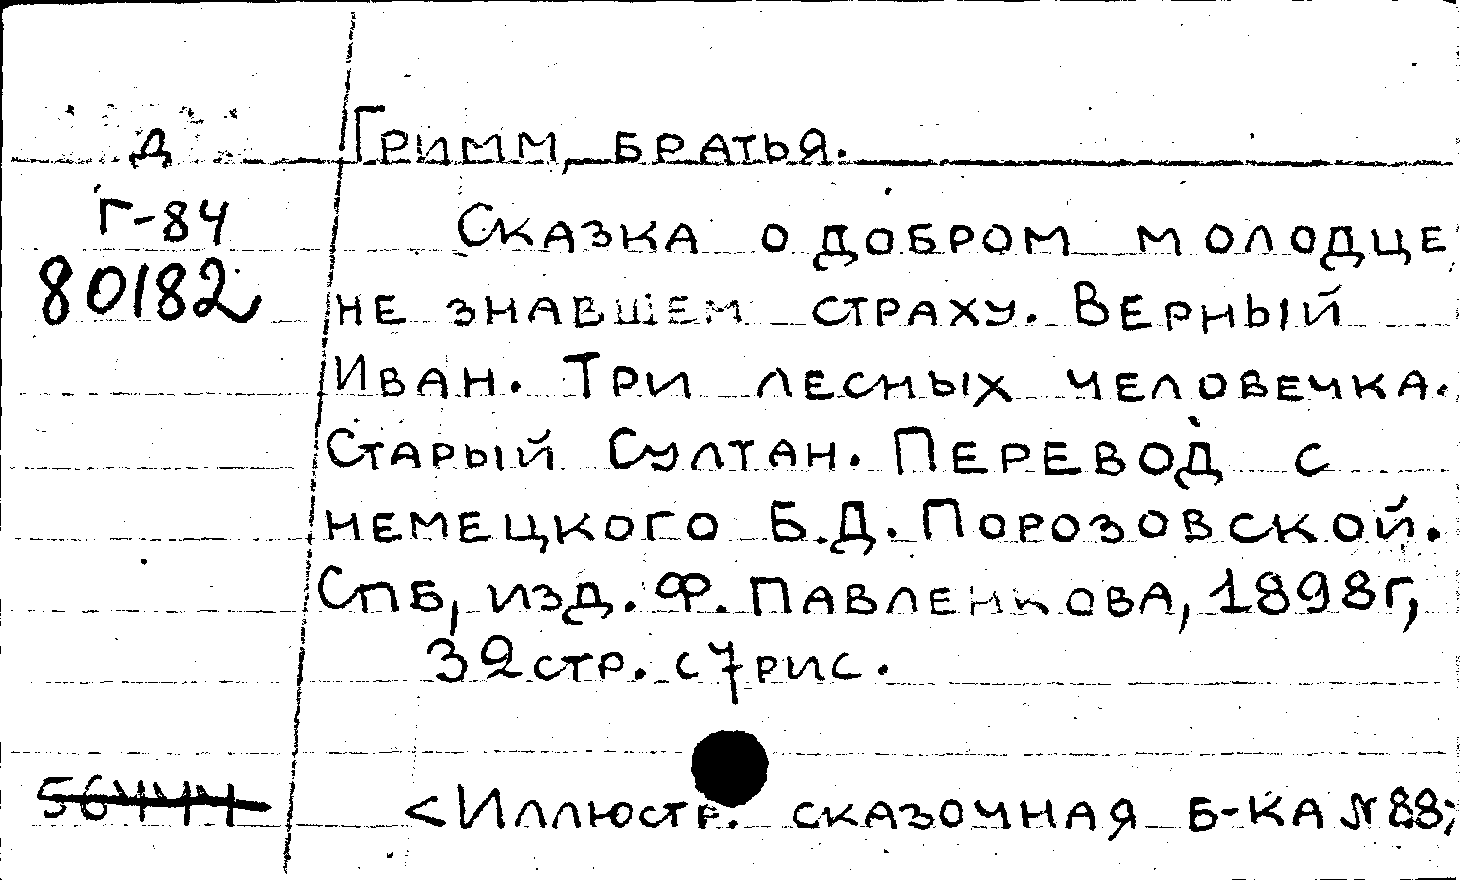 Д Гримм, братья.
Г-84 Сказка о добром молодце
80182 не знавшем страху. Верный
Иван. Три лесных человечка.
Старый Султан. Перевод с
немецкого Б.Д. Порозовской.
СПБ, изд. Ф. Павленкова, 1898г,
32 стр. с 7 рис.
56444 <Иллюстр. сказочная б-ка № 88;